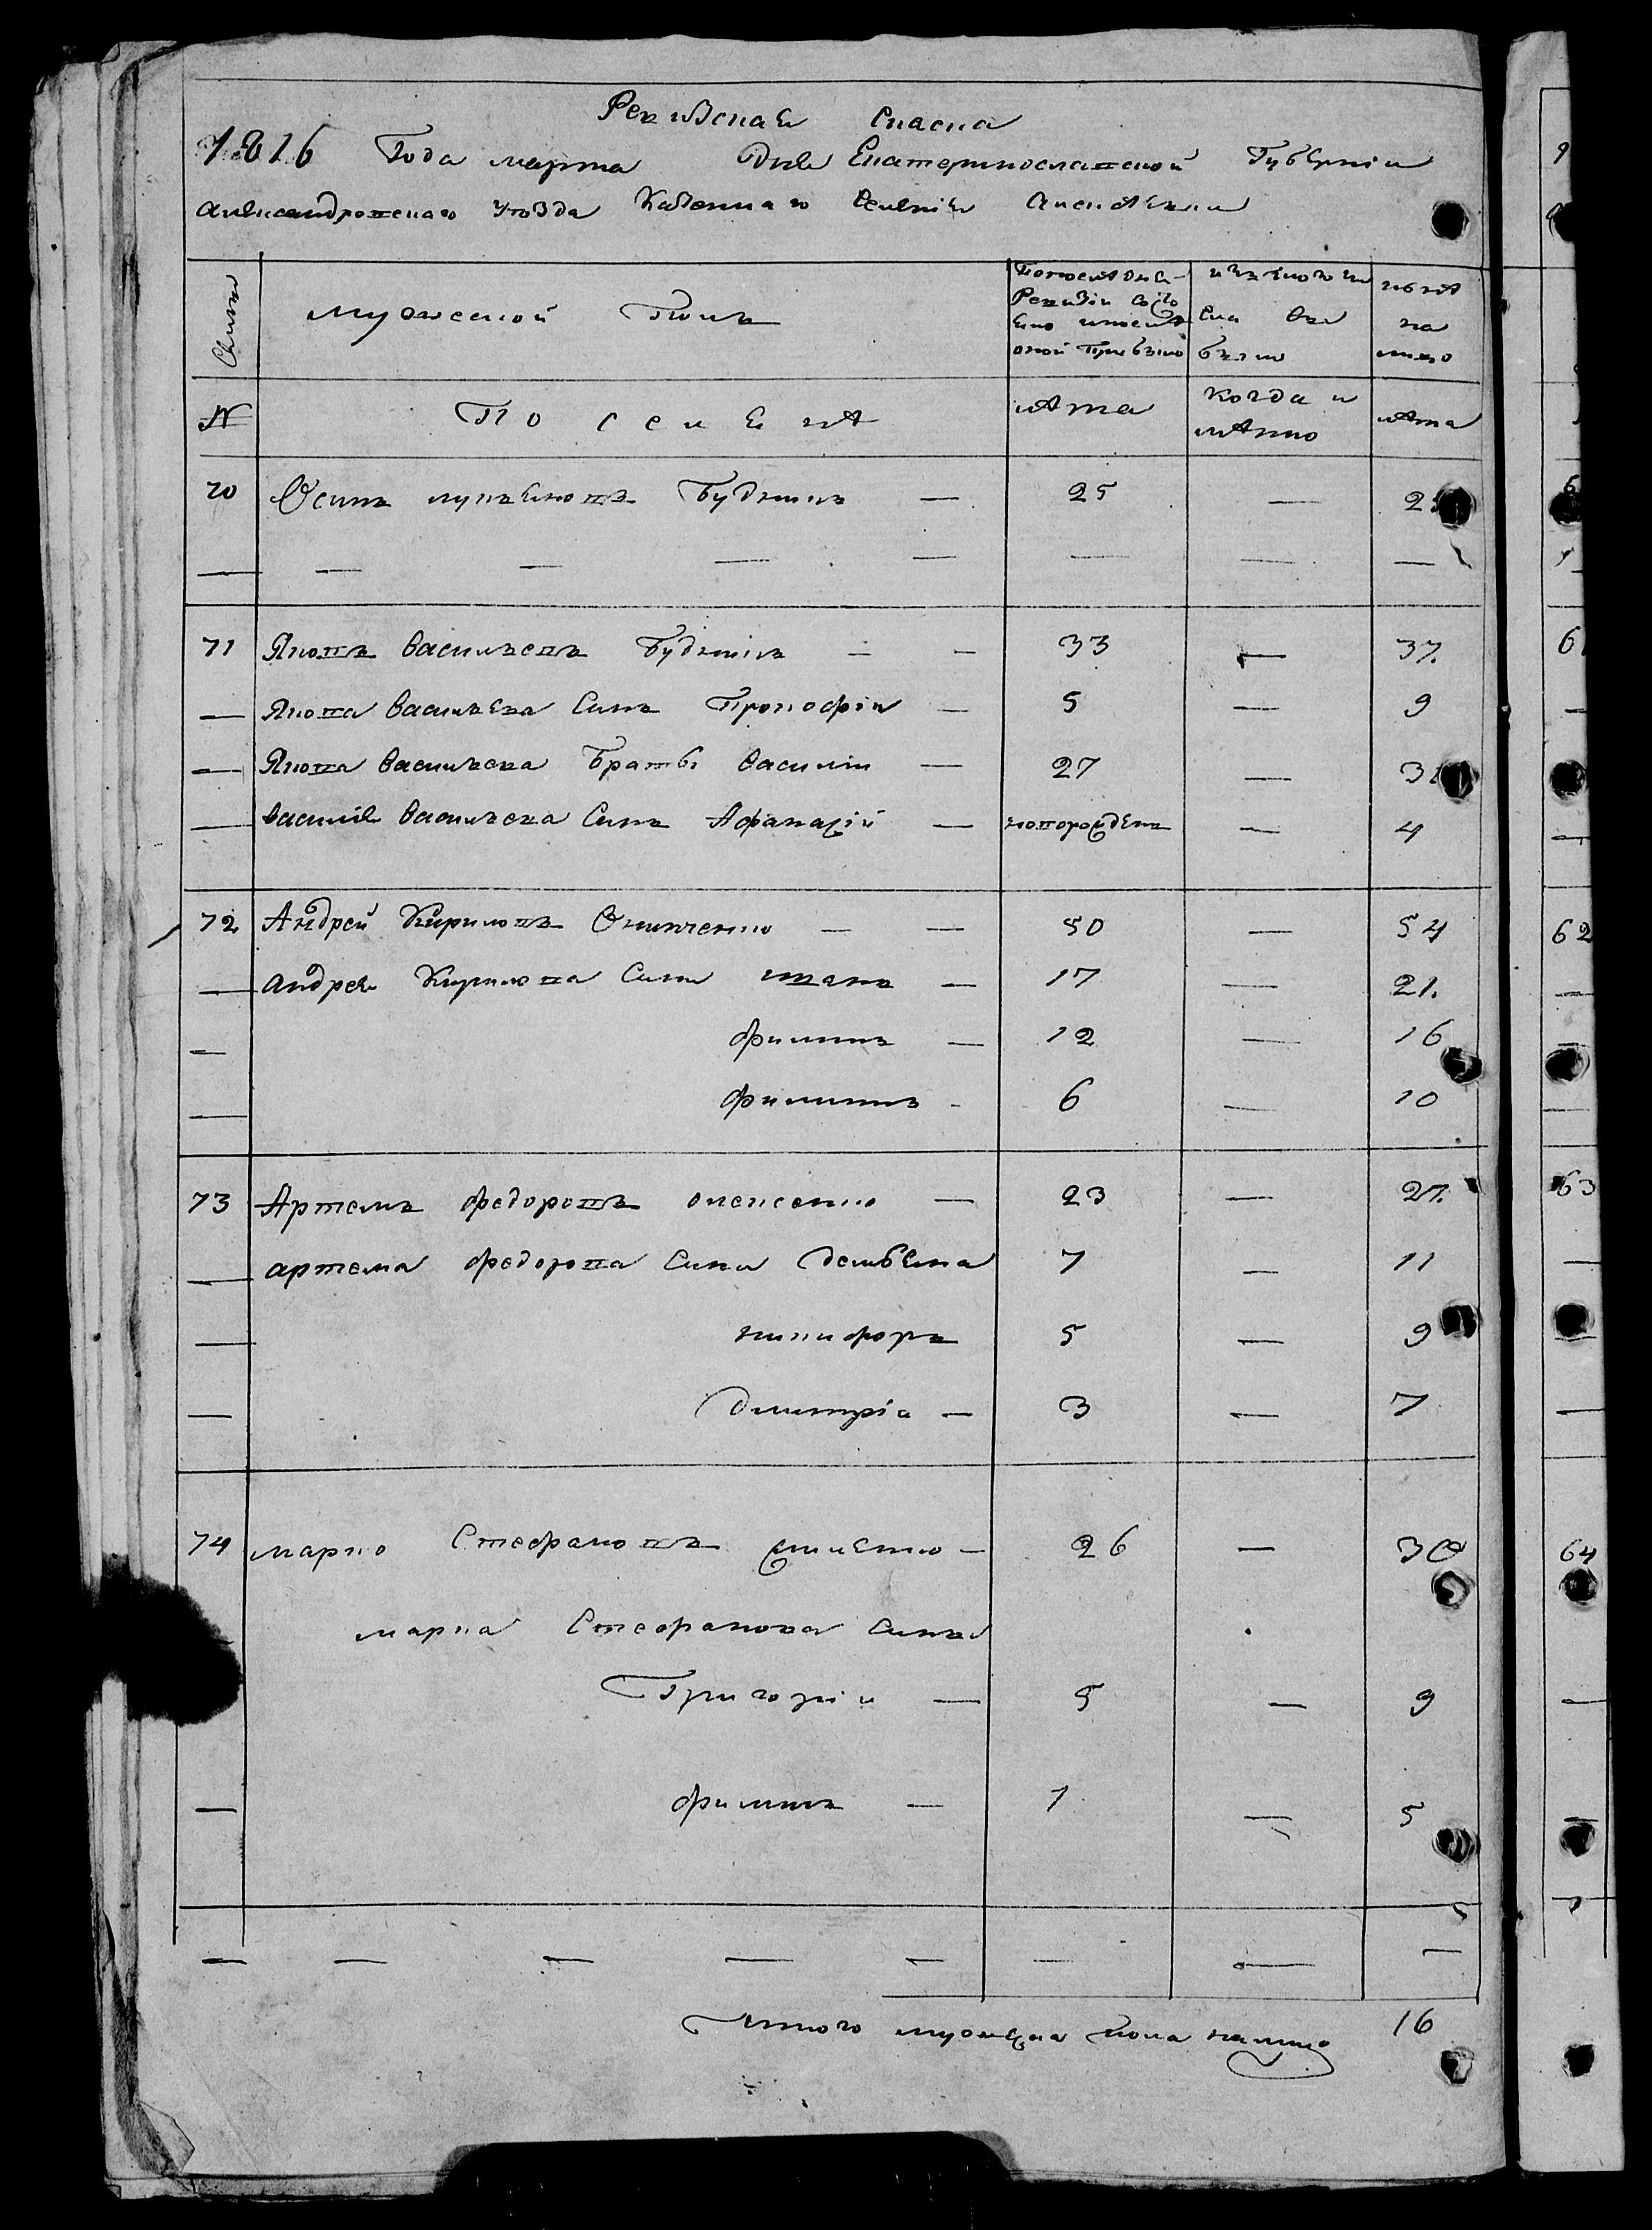 Ревизская Сказка
1816 Года марта дня Екатеринославской Губернии
александровского уезда Казенного Селения Алексеевки
Семьи
мужеской Полъ
Последней Ревизии Состояло и после оной Прибыло
из того числа выбыло
ныне на лицо
№ По семье лета когда и летно лета
70 Осипъ лукьяновъ Будянка — 25 — 2
— — — — — — — —
71 Яковъ васильевъ Будянка — — 33 — 37.
— Якова васильева Синъ Прокофий — 5 — 9
— Якова васильева Братъ василий — 27 — 3
— василия васильева Синъ Афанасий — новорожденъ — 4
72 Андрей Кириловъ Онипченко — — 50 — 54
— андрея Кирилова Сини иванъ — 17 — 21.
— филипъ — 12 — 16
— филипъ - 6 — 10
73 Артемъ федоровъ олексенко — 23 — 27.
— артема федорова Сини демьянъ 7 — 11
— никифоръ 5 — 9
— Дмитрий — 3 — 7
74 марко Стефановъ — 26 — 30
марка Стефанова Сины
Григорий — 5 — 9
— филипъ — 1 — 5
— — — — — — — —
итого мужеска пола налицо 16
9
61
62
63
64